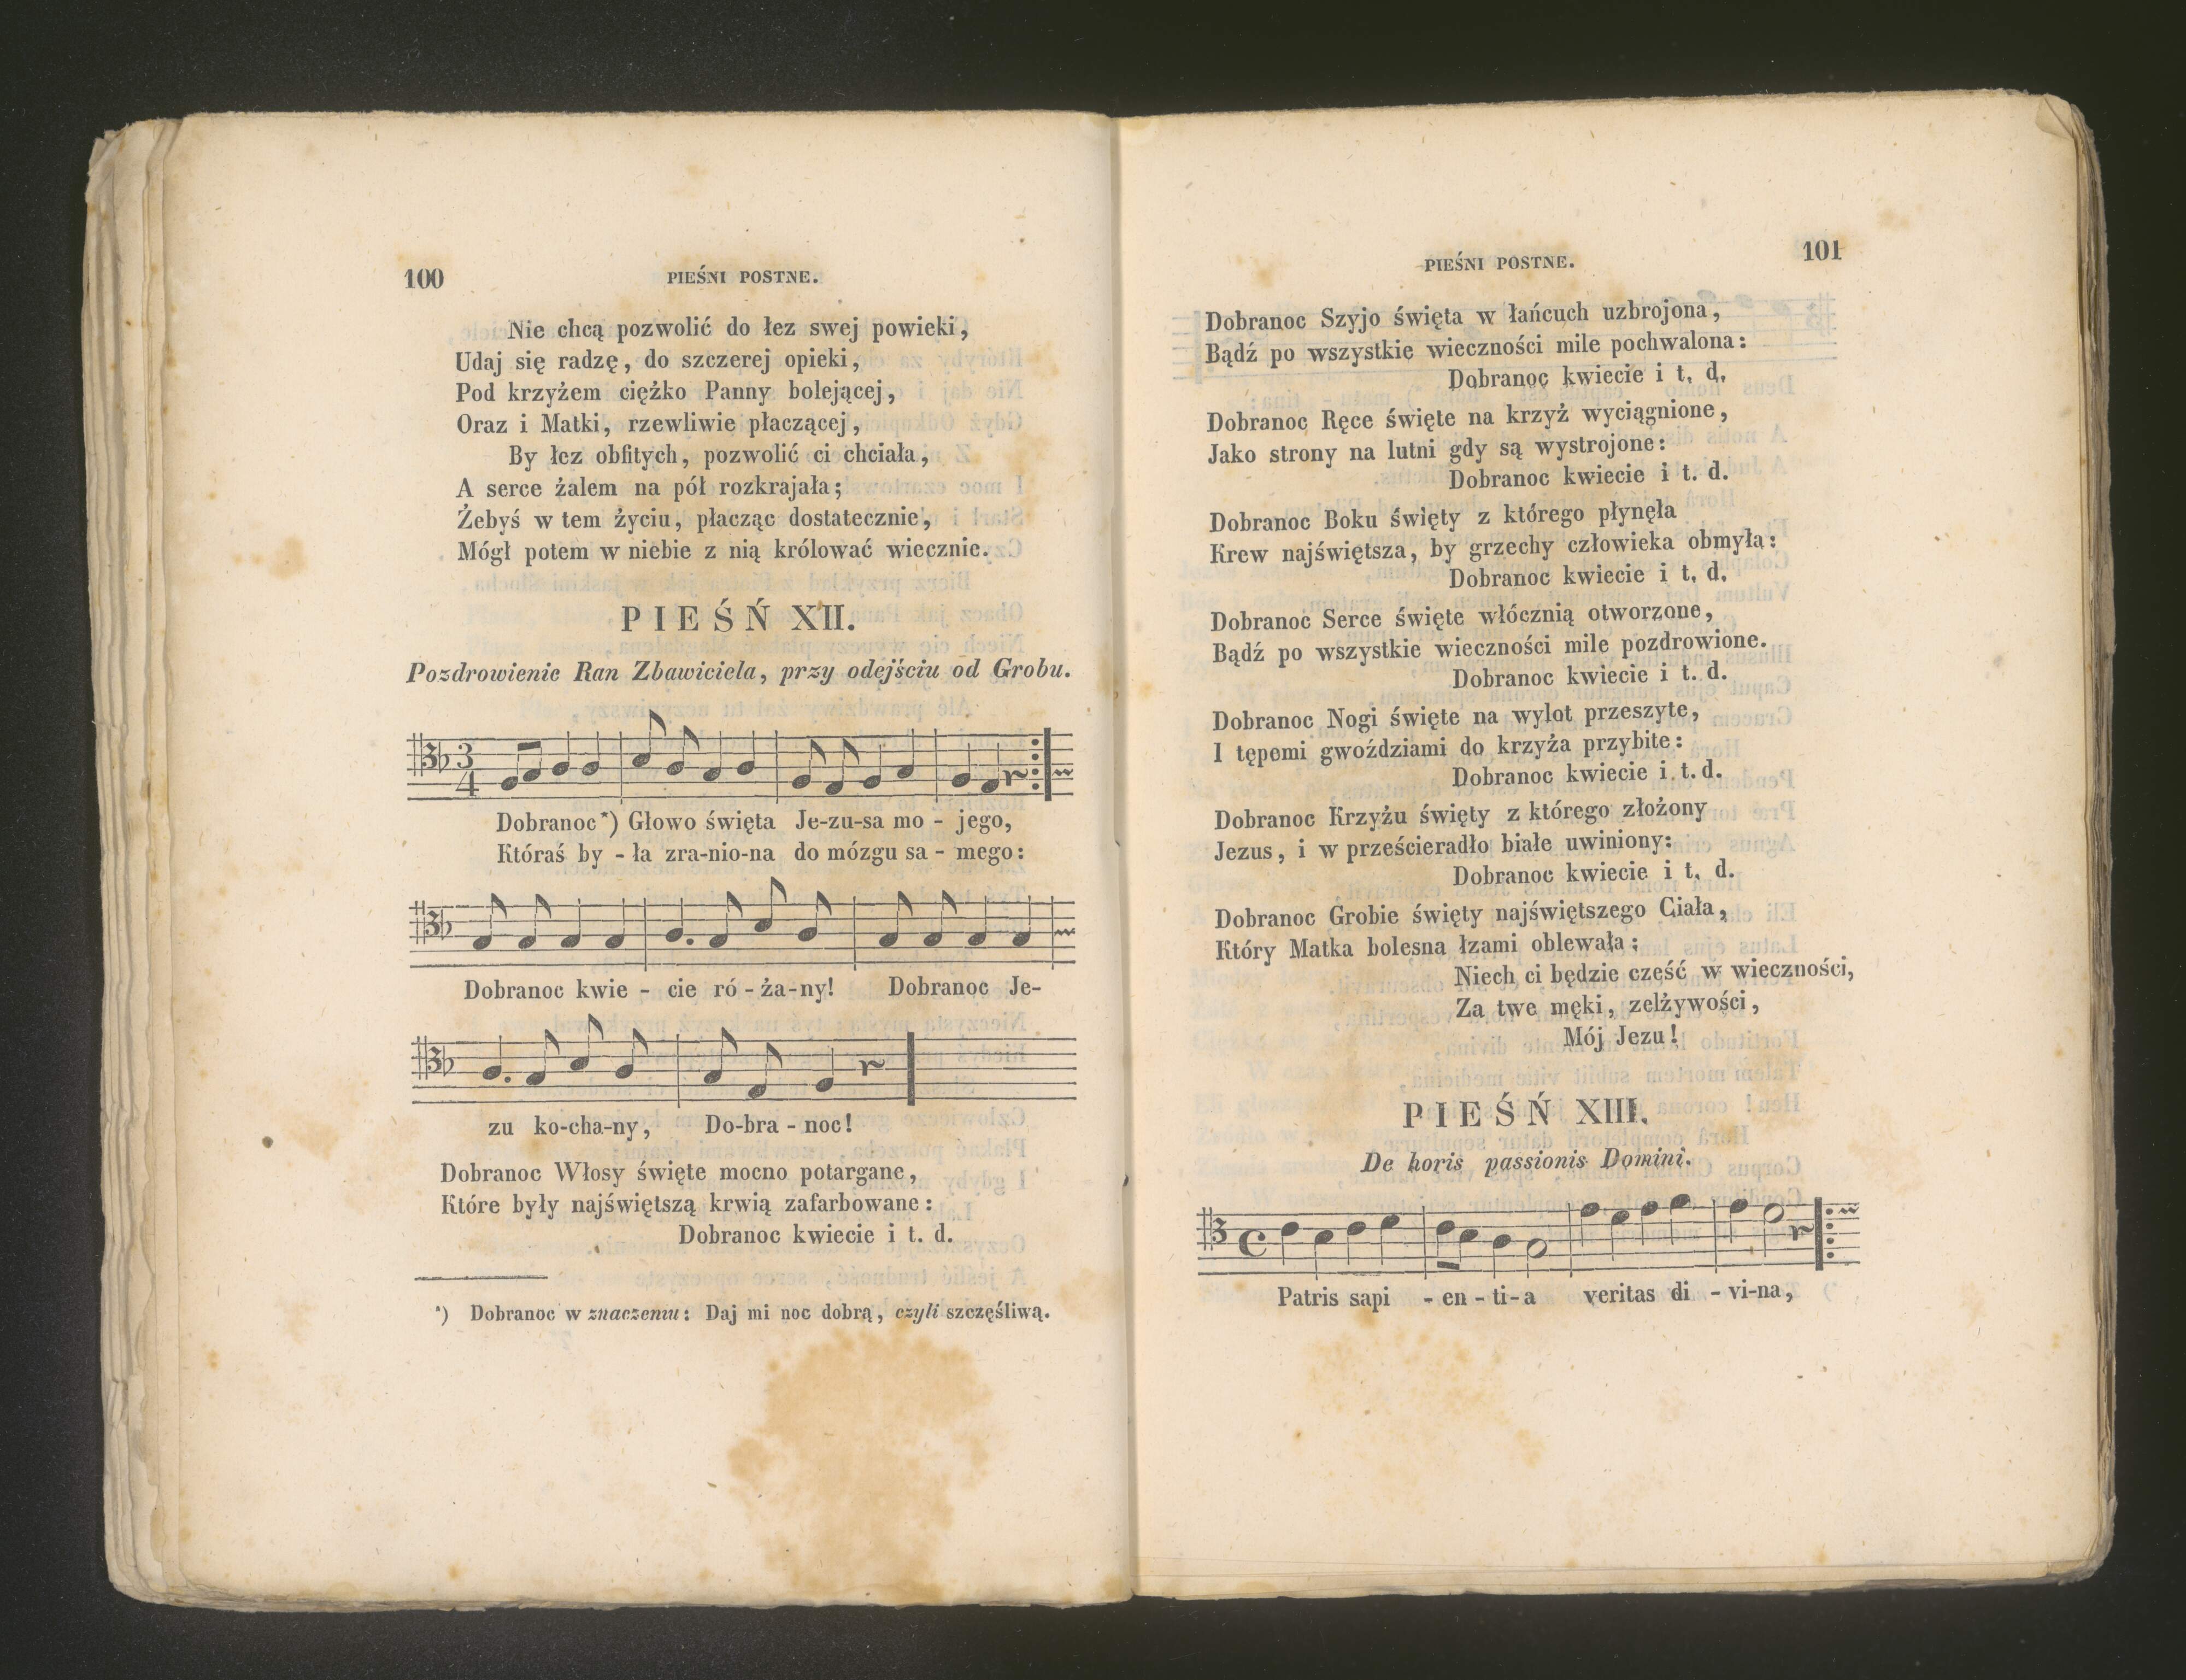 100
PIEŚNI POSTNE.
Nie chcą pozwolić do łez swej powieki,
Udaj się radzę, do szczerej opieki,
Pod krzyżem ciężko Panny bolejącej,
Oraz i Matki, rzewliwie płaczącej,
By łez obfitych, pozwolić ci chciała,
A serce żalem na pół rozkrajała;
Żebyś w tem życiu, płacząc dostatecznie,
Mógł potem w niebie z nią królować wiecznie.
PIEŚŃ XII.
Pozdrowienie Ran Zbawiciela, przy odejściu od Grobu.
3
4
Dobranoc*) Głowo święta Je-zu-sa mo - jego,
Któraś by - ła zra-nio-na do mózgu sa - mego:
Dobranoc kwie - cie ró - ża-ny! Dobranoc Je-
zu ko-cha-ny, Do-bra - noc!
Dobranoc Włosy święte mocno potargane,
Które były najświętszą krwią zafarbowane:
Dobranoc kwiecie i t. d.
*) Dobranoc w znaczeniu: Daj mi noc dobrą, czyli szczęśliwą.
PIEŚNI POSTNE.
101
Dobranoc Szyjo święta w łańcuch uzbrojona,
Bądź po wszystkie wieczności mile pochwalona:
Dobranoc kwiecie i t. d.
Dobranoc Ręce święte na krzyż wyciągnione,
Jako strony na lutni gdy są wystrojone:
Dobranoc kwiecie i t. d.
Dobranoc Boku święty z którego płynęła
Krew najświętsza, by grzechy człowieka obmyła:
Dobranoc kwiecie i t. d.
Dobranoc Serce święte włócznią otworzone,
Bądź po wszystkie wieczności mile pozdrowione.
Dobranoc kwiecie i t. d.
Dobranoc Nogi święte na wylot przeszyte,
I tępemi gwoździami do krzyża przybite:
Dobranoc kwiecie i t. d.
Dobranoc Krzyżu święty z którego złożony
Jezus, i w prześcieradło białe uwiniony:
Dobranoc kwiecie i t. d.
Dobranoc Grobie święty najświętszego Ciała,
Który Matka bolesna łzami oblewała:
Niech ci będzie cześć w wieczności,
Za twe męki, zelżywości,
Mój Jezu!
PIEŚŃ XIII.
De horis passionis Domini.
Patris sapi - en - ti-a veritas di - vi-na,